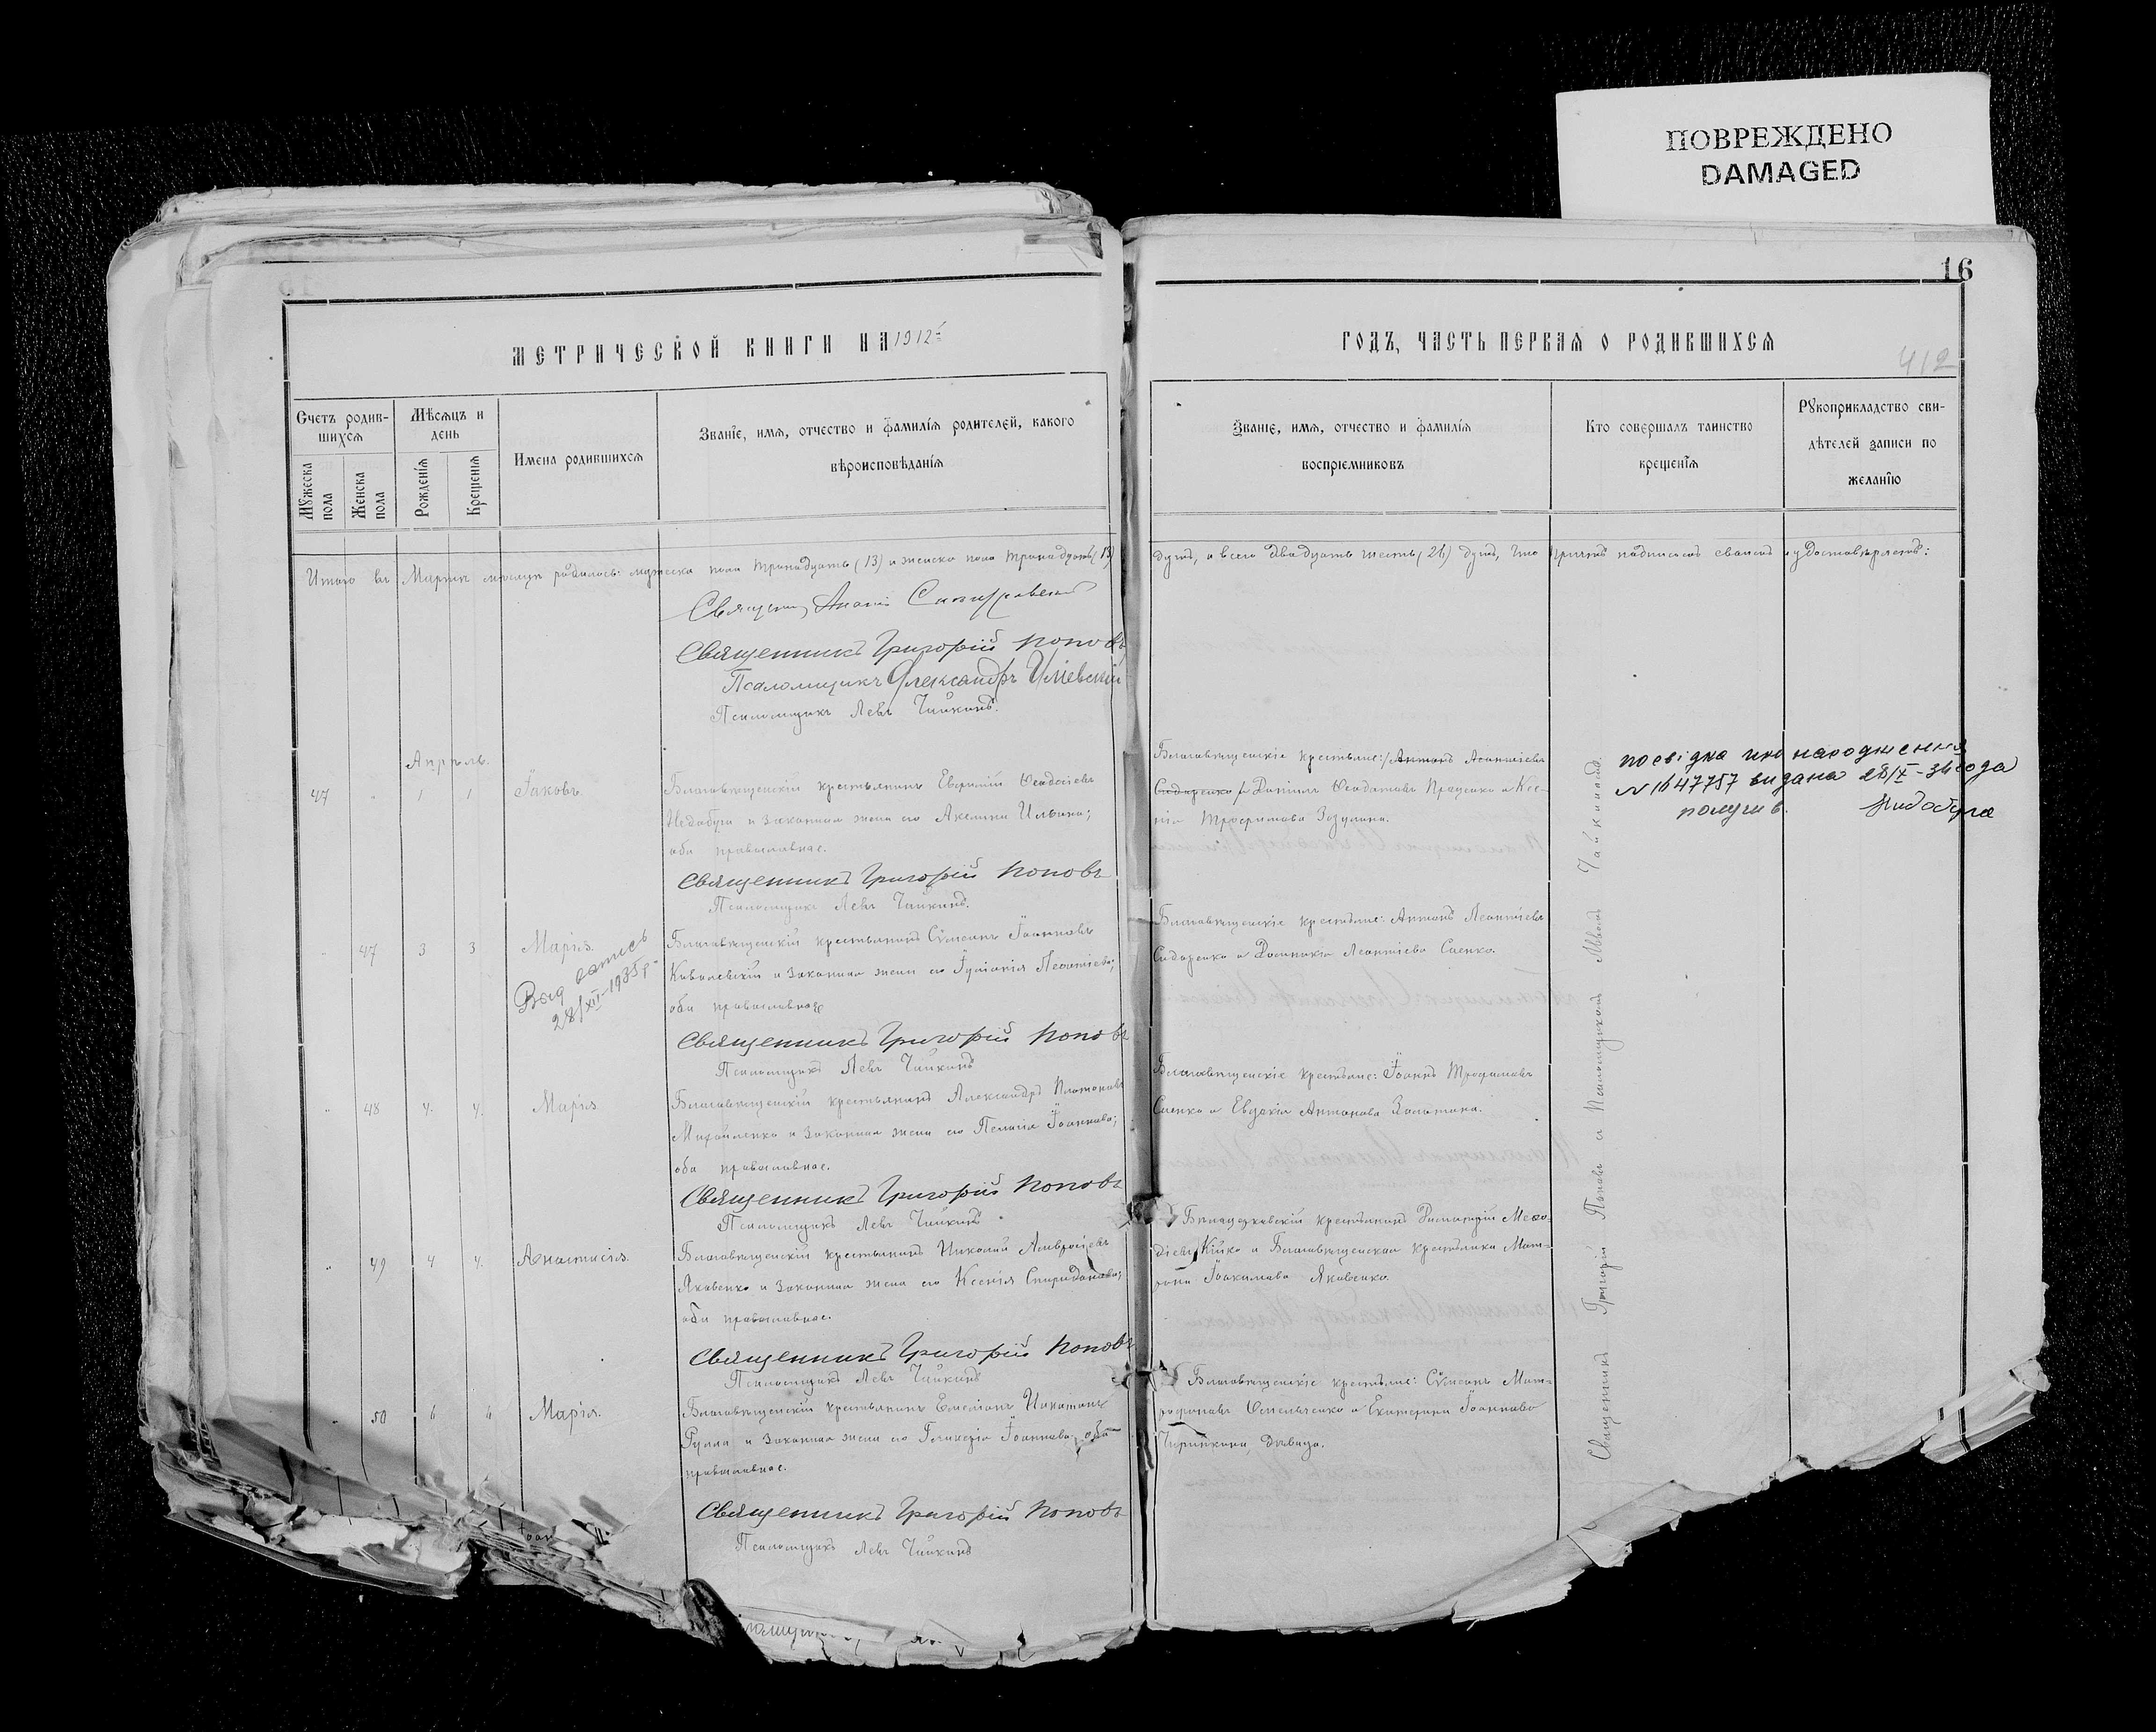 ПОВРЕЖДЕНО
DAMAGED
16
412
МЕТРИЧЕСКОЙ КНИГИ НА 1912 г
ГОДЪ, ЧАСТЬ ПЕРВАЯ О РОДИВШИХСЯ
Счетъ родив-
шихся
Мужеска пола
Женска пола
Мѣсяцъ и
день
Рожденія
Крещенія
Имена родившихся
Званіе, имя, отчество и фамилія родителей, какого
вѣроисповѣданія
Званіе, имя, отчество и фамилія
воспріемниковъ
Кто совершалъ таинство
крещенія
Рукоприкладство сви-
дѣтелей записи по
желанію
Итого въ Мартѣ мѣсяцѣ родилось: мужеска пола тринадцать (13) и женска пола тринадцать (13)
душъ, а всего двадцать шесть (26) душъ, что причтъ подписомъ своимъ удостовѣряетъ:
Священникъ
Священникъ Григорій Поповъ
Псаломщикъ Александръ
Псаломщикъ Левъ Чайкинъ.
Апрѣль.
47 " 1 1 Іаковъ.
Благовѣщенскій крестьянинъ Евфимій Ѳеодосіевъ
Недобуга и законная жена его Акелина Ильина;
оба православные.
Священникъ Григорій Поповъ
Псаломщикъ Левъ Чайкинъ.
Благовѣщенскіе крестьяне: /Антонъ Леонтіевъ
Сидоренко/ Даніилъ Ѳеодотовъ Проценко и Ксе-
нія Трофимова Зозулина.
посвідка про народження
N 1647757 видана 28/X-34 года
получив. Нидобуга
" 47 3 3 Марія.
Выд
28/XII-1935 р.
Благовѣщенскій крестьянинъ Сѵмеонъ Іоанновъ
Ковалевскій и законная жена его Іуліанія Леонтіева;
оба православные
Священникъ Григорій Поповъ
Псаломщикъ Левъ Чайкинъ
Благовѣщенскіе крестьяне: Антонъ Леонтіевъ
Сидоренко и Домникія Леонтіева Саенко.
" 48 4. 4. Марія
Благовѣщенскій крестьянинъ Александръ Платоновъ
Михайленко и законная жена его Пелагія Іоаннова;
оба православные.
Священникъ Григорій Поповъ
Псаломщикъ Левъ Чайкинъ
Благовѣщенскіе крестьяне: Іоаннъ Трофимовъ
Саенко и Евдокія Антонова Золотина.
" 49 4 4. Анастасія.
Благовѣщенскій крестьянинъ Николай Амвросіевъ
Яковенко и законная жена его Ксенія Спиридонова;
оба православные.
Священникъ Григорій Поповъ
Псаломщикъ Левъ Чайкинъ
крестьянинъ Димитрій Меѳо-
діевъ Кійко и Благовѣщенская крестьянка Мат-
рона Іоакимова Яковенко.
" 50 6 6 Марія.
Благовѣщенскій крестьянинъ Емеліанъ
и законная жена его Гликерія Іоаннова; оба
православные.
Священникъ Григорій Поповъ
Псаломщикъ Левъ Чайкинъ
Благовѣщенскіе крестьяне: Сѵмеонъ Мит-
рофановъ Омельченко и Екатерина Іоаннова
дѣвица.
Священникъ Григорій Поповъ и Псаломщикъ Левъ Чайкинъ.